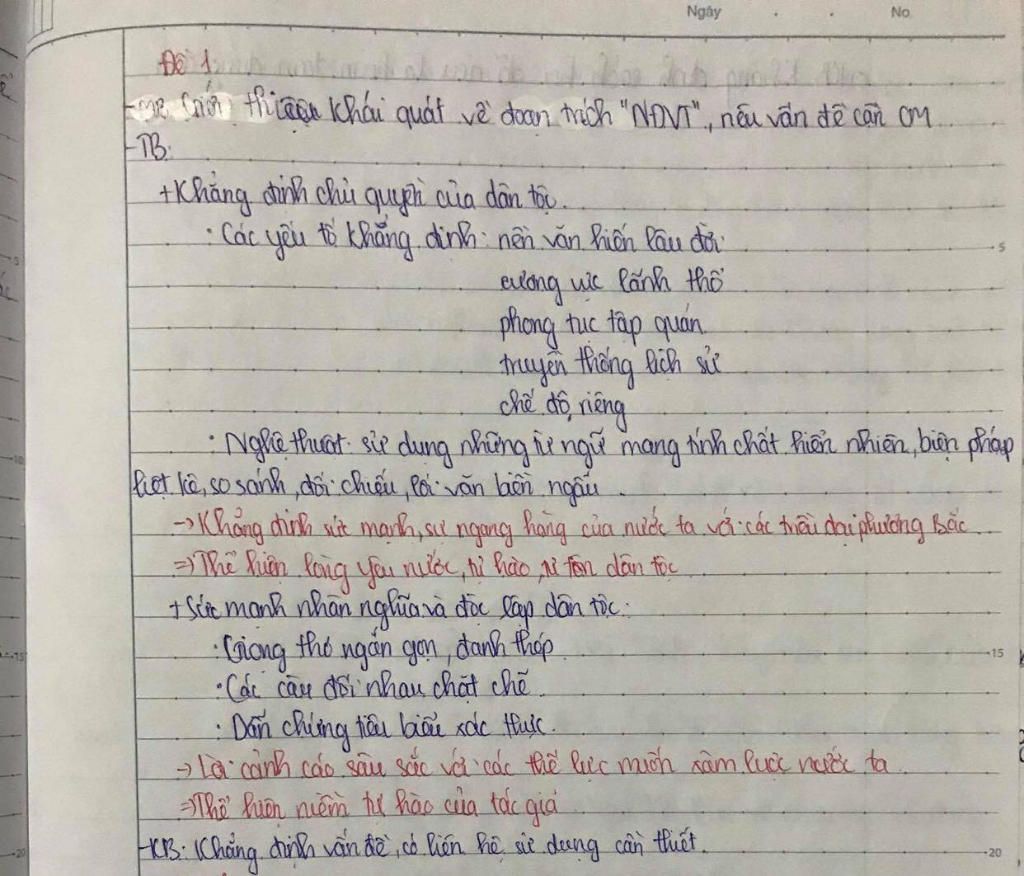 Ngày . . No.
Đề 1
-MB: Giới thiệu khái quát về đoạn trích "NĐVT", nêu vấn đề cần CM
-TB:
+Khẳng định chủ quyền của dân tộc.
· Các yếu tố khẳng định: nền văn hiến lâu đời
cương vực lãnh thổ
phong tục tập quán
truyền thống lịch sử
chế độ riêng
· Nghệ thuật: sử dụng những từ ngữ mang tính chất hiển nhiên, biện pháp
liệt kê, so sánh, đối chiếu, lời văn biền ngẫu
-> Khẳng định sức mạnh, sự ngang hàng của nước ta với các triều đại phương Bắc
=> Thể hiện lòng yêu nước, tự hào, tự tôn dân tộc
+ Sức mạnh nhân nghĩa và độc lập dân tộc:
· Giọng thơ ngắn gọn, đanh thép
· Các câu đối nhau chặt chẽ
· Dẫn chứng tiêu biểu xác thực.
-> Lời cảnh cáo sâu sắc với các thế lực muốn xâm lược nước ta
=> Thể hiện niềm tự hào của tác giả
-KB: Khẳng định vấn đề, có liên hệ sử dụng cần thiết.
5
10
15
20